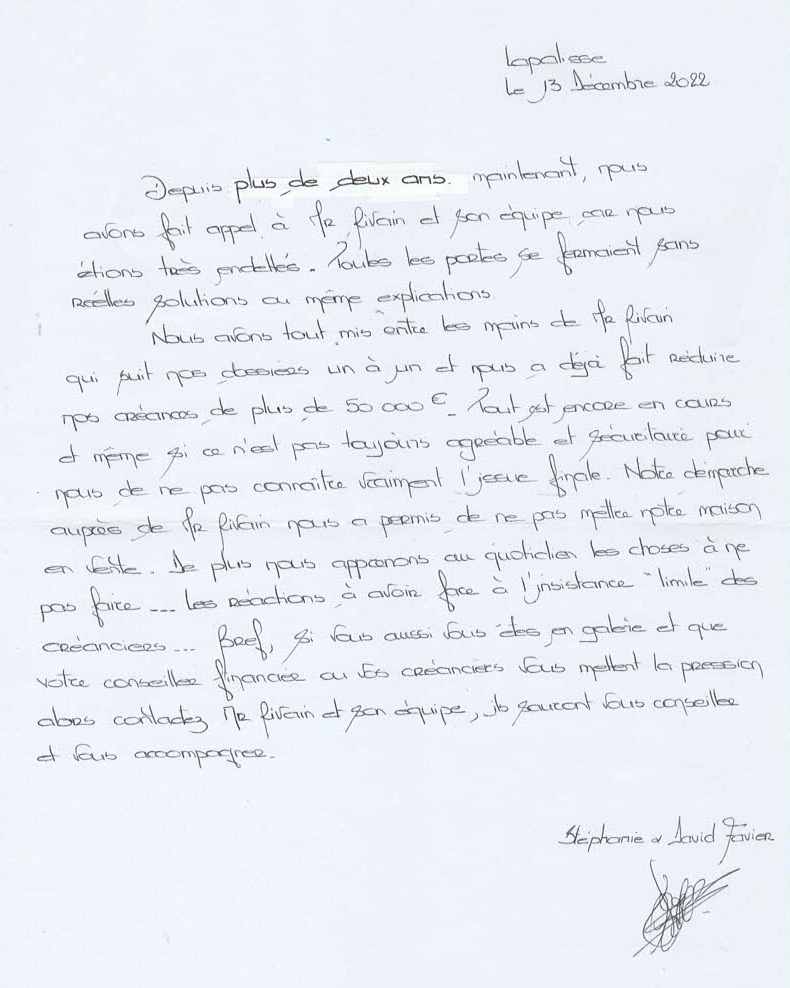 Lapalisse
Le 13 Décembre 2022
Depuis plus de deux ans. maintenant, nous
avons fait appel à Mr Rivain et son équipe car nous
étions très endettés. Toutes les portes se fermaient sans
réelles solutions ou même explications.
Nous avons tout mis entre les mains de Mr Rivain
qui suit nos dossiers un à un et nous a déjà fait réduire
nos créances de plus de 50 000 €. Tout est encore en cours
et même si ce n'est pas toujours agréable et sécuritaire pour
nous de ne pas connaître vraiment l'issue finale. Notre démarche
auprès de Mr Rivain nous a permis de ne pas mettre notre maison
en vente. De plus nous apprenons au quotidien les choses à ne
pas faire ... les réactions à avoir face à l'insistance "limite" des
créanciers ... Bref, si vous aussi vous êtes en galère et que
votre conseiller financier ou vos créanciers vous mettent la pression
alors contactez Mr Rivain et son équipe, ils sauront vous conseiller
et vous accompagner.
Stéphanie & David Favier